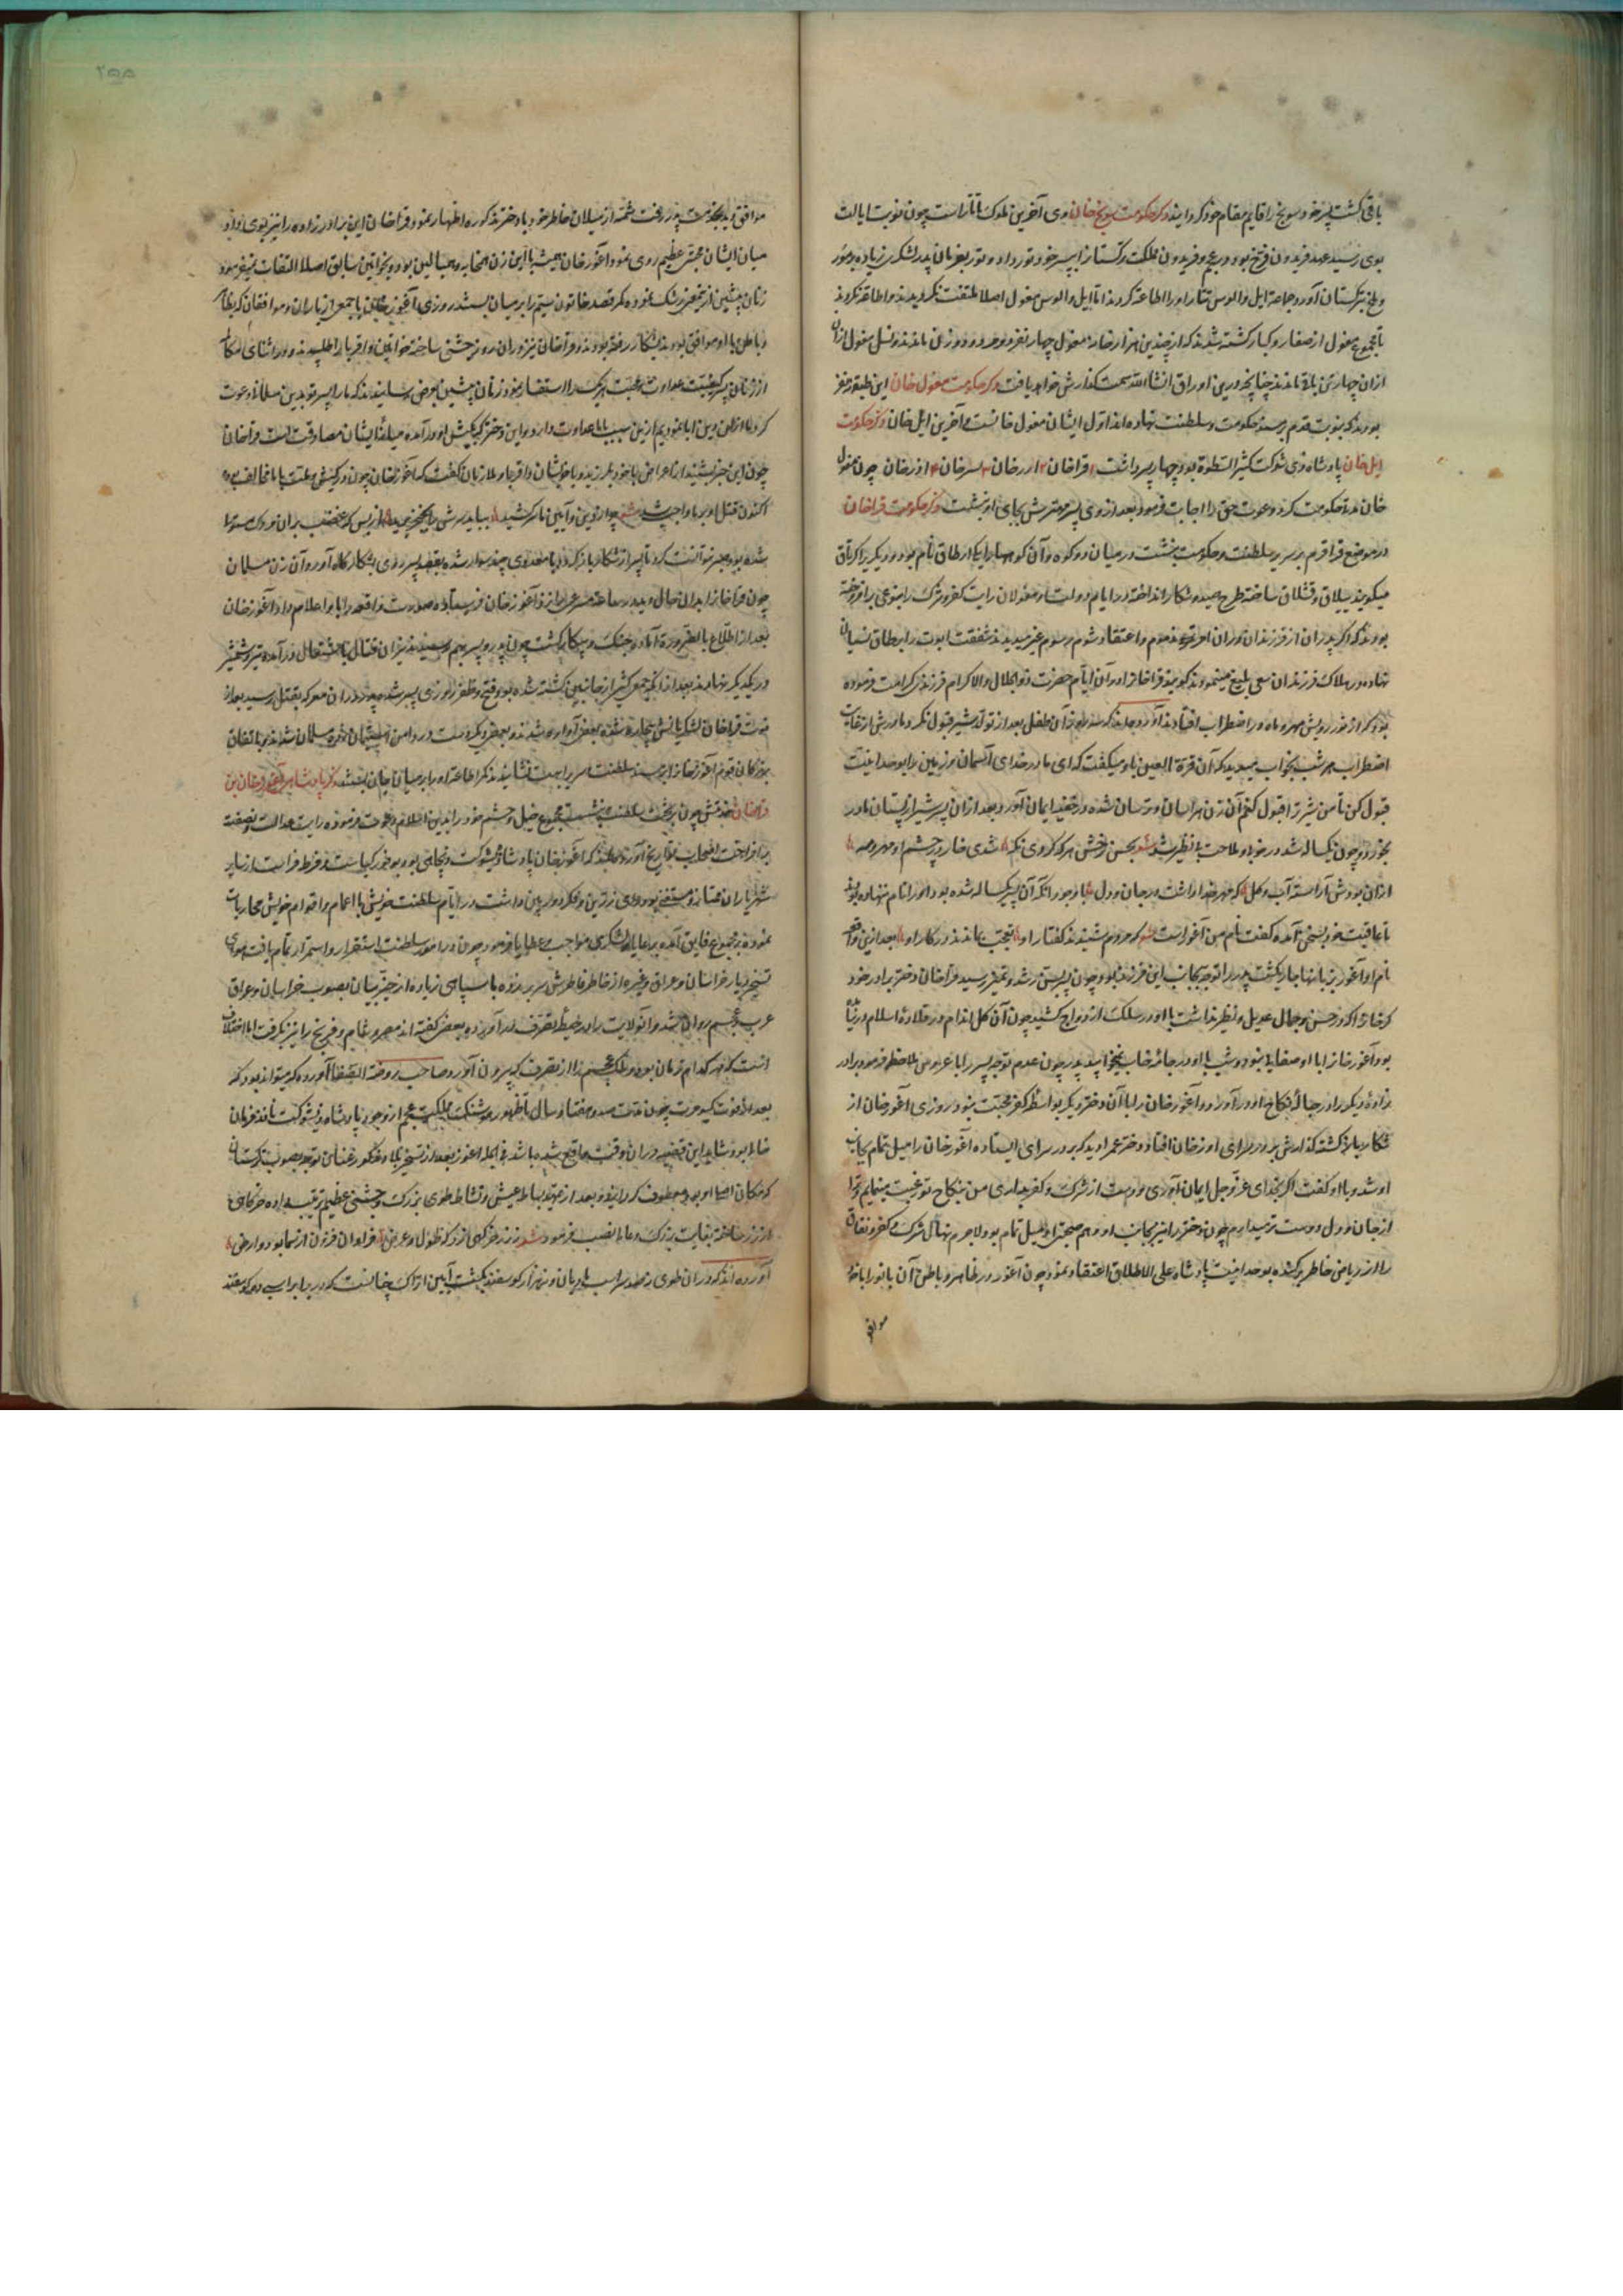 باقی گشت پسر خود سونج را قایم مقام خود گردانید ذکر حکومت سونج خان وی آخرین ملوک تاتار است چون نوبت ایالت
بوی رسید عهد فریدون فرخ بود در عجم و فریدون مملکت ترکستان را به پسر خود تور داد و تور بفرمان پدر لشکری زیاده از مور
و ملخ بترکستان آورد جماعة ایل و الوس تتار او را اطاعة کردند اما ایل و الوس مغول اصلا ملتفت نگردیدند و اطاعة نکردند
تا مجموع مغول از صغار و کبار کشته شدند که از چندین هزار خانه مغول چهار نفر دو مرد و دو زن ماندند و نسل مغول ازان
ازان چهار تن باقی ماندند چنانچه درین اوراق انشا الله سمت گذارش خواهد یافت ذکر حکومت مغول خان این طبقه نه نفر
بودند که بنوبت قدم بر مسند حکومت و سلطنت نهاده اند اول ایشان مغول خانست و آخرین ایل خان ذکر حکومت
ایل خان پادشاه ذی شوکت کثیر السطوة بود چهار پسر داشت ۱ قراخان ۲ ارخان ۳ ۴ اذرخان چون مغول
خان مدة حکومت کرد دعوت حق را اجابت فرمود بعد از وی پسر مهترش بجای او بنشست ذکر حکومت قراخان
در موضع قراقرم بر سریر سلطنت و حکومت بنشست در میان دو کوه و آن کوهها را یکی ارطاق نام بود و دیگریرا کرتاق
میگویند ییلاق و قشلاق ساخته طرح صید و شکار انداخته در ایام دولت او مغولان رایت کفر و شرک را بنوعی برافروخته
بودند که اگر پدران از فرزندان دران امر مذموم و اعتقاد شوم رسوم غیر میدیدند شفقت ابوت را بر طاق نسیان
نهاده در هلاک فرزندان سعی بلیغ مینمودند گویند قراخان را در آن ایام حضرت ذو الجلال و الاکرام فرزندی کرامت فرموده
بود که از نور رویش مهر و ماه در اضطراب افتادند آورده اند که سه روز آن طفل بعد از تولد شیر قبول نکرد مادرش از غایت
اضطراب هر شب بخواب میدید که آن قرة العین باو میگفت که ای مادر خدای آسمان و زمین را بوحدانیت
قبول کن تا من شیر ترا قبول کنم آن زن هراسان و ترسان شده در خفیه ایمان آورد بعد ازان پسر شیر از پستان مادر
بخورد و چون یکساله شد در خوبی و ملاحت بی نظیر شد شعر بحسن رخش هر که کردی نگه شدی خار در چشم او مهر و مه
ازان بود رویش آراسته آب و گل که مهر خدا داشت در جان و دل با وجود آنکه آن پسر یکساله شده بود او را نام ننهاده بودند
تا عاقبت خود بسخن آمده گفت نام من آغوز است شعر که مردم شنیدند گفتار او تعجب بماندند در کار او بعد ازین واقعه
نام او آغوز بزبانها جاری گشت پدر را توجه بجانب این فرزند بود و چون بسن رشد و تمیز رسید قراخان دختر برادر خود
کرخان را که در حسن و جمال عدیل و نظیر نداشت با او در سلک ازدواج کشید چون آن گل اندام در قلاده اسلام در نیامده
بود آغوز خان از او ابا و استغنا مینمود و شب با او در جامه خواب نمیخوابید پدر چون عدم توجه پسر را با عروس ملاحظه فرمود برادر
زادهٔ دیگر را در حبالهٔ نکاح او در آورد و آغوز خان را با آن دختر دیگر بواسطهٔ کفر محبت نبود روزی آغوز خان از
شکار باز گشته گذارش بر در سرای اورخان افتاد دختر عم را دید که بر در سرای ایستاده آغوز خان را میل تمام بجانب
او شد و با او گفت اگر بخدای عز و جل ایمان آوری و دست از شرک و کفر بداری من بنکاح تو رغبت مینمایم و ترا
از جان و دل دوست میدارم چون دختر را نیز بجانب او و هم صحبتی او میل تمام بود لاجرم نهال شرک و کفر و نفاق
را از ریاض خاطر برکنده بوحدانیت پادشاه علی الاطلاق اعتقاد نمود چون آغوز در ظاهر و باطن آن بانو را با خود
موافق
۲۵۵
موافق دید بخدمت پدر رفت شمهٔ از میلان خاطر خود با دختر مذکوره اظهار نمود و قراخان این برادرزاده را نیز بوی داد و
میان ایشان محبتی عظیم روی نمود و آغوز خان همیشه با این زن همخانه و هم بالین بود و بخواتین سابق اصلا التفات نمیفرمود
زنان پیشین ازین معنی رشک نموده کمر قصد خاتون سیم را بر میان بستند روزی آغوز خان با جمعی از یاران و موافقان که بظاهر
و باطن با او موافق بودند بشکار رفته بودند و قراخان نیز دران روز جشن ساخته خواتین و اقربا را طلبید و در اثنای مکالمه
از زنان پسر کیفیت عداوت و محبت هر یک را استفسار نمود زنان پیشین بعرض رسانیدند که ما را پسر تو بدین مسلمانی دعوت
کرد ما ازان دین ابا نمودیم ازین سبب با ما عداوت دارد و این دختر کوچک بکیش او در آمده میانهٔ ایشان مصادقت است قراخان
چون این خبر بشنید از اعراض با خود بلرزید و با خویشان و اقربا و ملازمان گفت که آغوز خان چون در کیش و ملت با ما مخالف بود
اکنون قتل او بر ما واجب شد شعر چو از دین و آیین ما سرکشید بباید سرش را بخنجر برید از بس که غضب بران مردک مستولی
شده بود صبر نتوانست کرد تا پسر از شکار باز گردد با معدودی چند سوار شده بقصد پسر روی بشکارگاه آورد آن زن مسلمان
چون قراخان را بدان حال دید در ساعت مسرعی را نزد آغوز خان فرستاده صورت واقعه را باو اعلام داد آغوز خان
بعد از اطلاع بالضرورة آمادهٔ جنگ و پیکار گشت چون پدر و پسر بهم رسیدند نیران قتال باشتعال در آمده تیر و شمشیر
در یکدیگر نهادند بعد ازانکه جمع کثیر از جانبین کشته شده بود فتح و ظفر روزی پسر شد و پدر دران معرکه بقتل رسید بعد از
فوت قراخان لشکریانش بعضی آواره شدند و بعضی دیگر دست در دامن امان زده مسلمان شدند و باتفاق
بزرگان قوم آغوز خان را بر مسند سلطنت نشانیدند کمر اطاعة او را بر میان جان بستند ذکر پادشاهی آغوز خان بن
قراخان چون بر تخت سلطنت بنشست مجموع خیل و حشم خود را بدین اسلام دعوت فرموده رایت عدالت و نصفت
برافراخت اصحاب تواریخ آورده اند که آغوز خان پادشاه با شوکت و بود بوفور کیاست و فرط فراست از سایر
شهریاران ممتاز و مستثنی بود و رای زرین و فکر دوربین داشت در ایام سلطنت خویش با اعمام و اقوام خویش محاربات
نموده بر مجموع فایق آمده برعایا و لشکری مواجب و عطایا فرمود چون در امور سلطنت استقرار و استمرار تمام یافت هوای
تسخیر دیار خراسان و عراق و غیره از خاطر فاطرش سر بر زده با سپاهی زیاده از حیز بیان بصوب خراسان و عراق
عرب و عجم روان شد و آن ولایت را در حیطهٔ تصرف در آورده و بعضی گفته اند مصر و شام و فرنج را نیز بگرفت اما اختلاف
انست که در کدام زمان بود و ملک عجم را از تصرف که بیرون آورد صاحب روضة الصفا آورده که میتواند بود که
بعد از فوت کیومرث چون مدت صد و هفتاد سال تا ظهور هوشنگ مملکت عجم از وجود پادشاه ذی شوکت نافذ فرمان
خالی بود شاید این قضیه دران وقت واقع شده باشد فی الجمله آغوز بعد از تسخیر بلاد مذکور عنان توجه بصوب ترکستان
که مکان اصلی او بود معطوف گردانید و بعد از تمهید بساط عیش و نشاط طوی بزرگ و جشنی عظیم ترتیب داده خرگاهی
از زر ساخته بغایت بزرگ و عالی نصب فرمود شعر زدند خرگهی از زر که طول و عرض فراوان فزون از سما بود و ارض
آورده اند که دران طوی نهصد سر اسب مادیان و نه هزار گوسفند بکشت آیین اتراک چنانست که در برابر اسب ده گوسفند